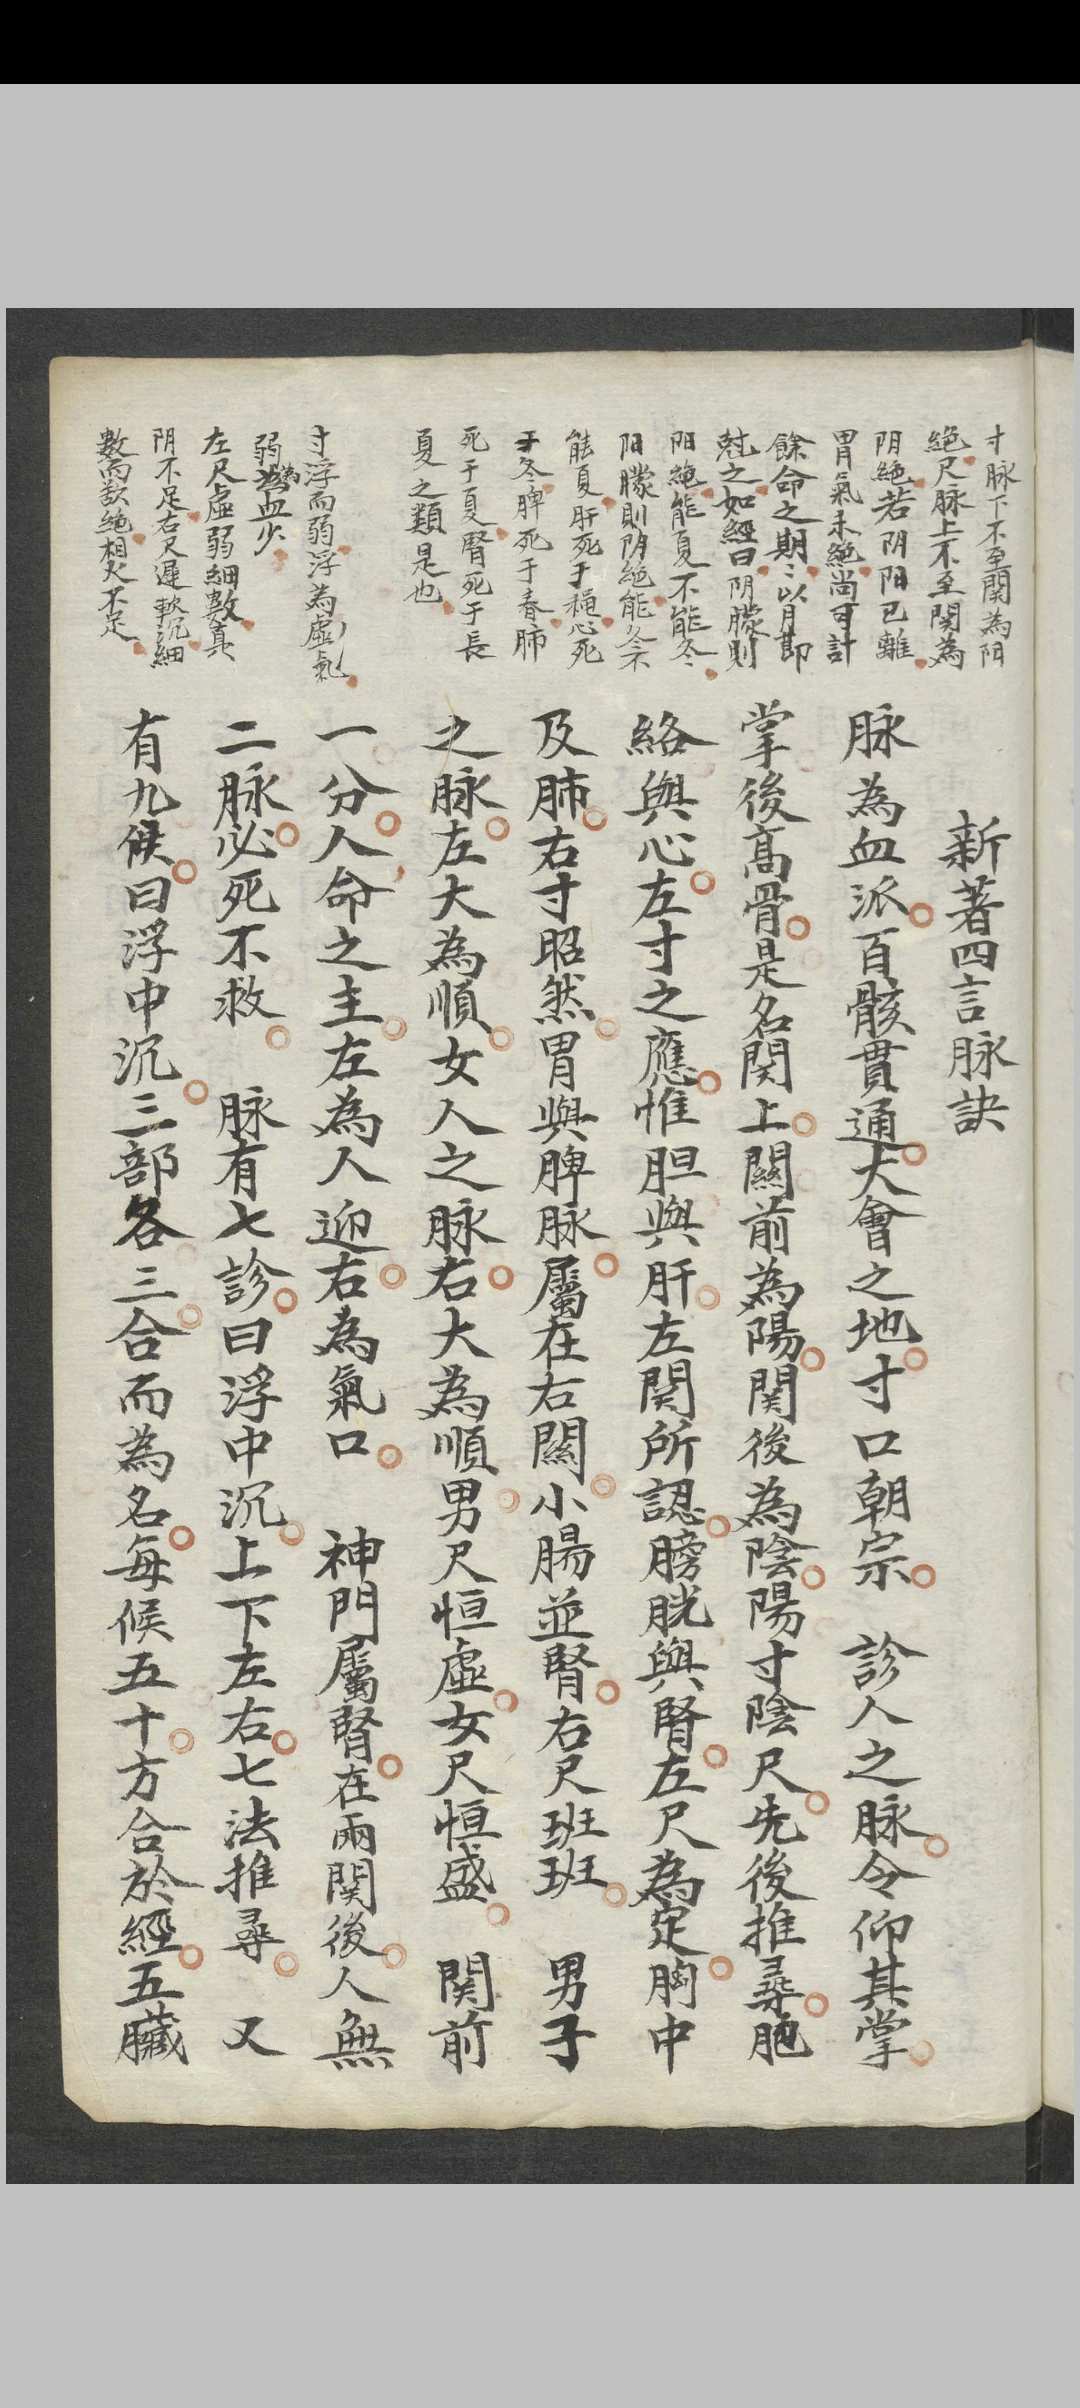 寸脉下不至関為阳
絶尺脉上不至関為
阴絶若阴阳已離
胃氣未絶尚可計
餘命之期〻以月即
尅之如經曰阴朦則
阳絶能夏不能冬
阳朦則阴絶能冬不
能夏肝死于秋心死
于冬脾死于春肺
死于夏腎死于長
夏之類是也
寸浮而弱浮為虛氣
弱為血少
左尺虛弱細數真
阴不足右尺遲軟沉細
數而歇絶相火不足
新著四言脉訣
脉為血派百骸貫通大會之地寸口朝宗　診人之脉令仰其掌
掌後髙骨是名関上闗前為陽関後為陰陽寸陰尺先後推尋胞
絡與心左寸之應惟胆與肝左関所認膀胱與腎左尺為定胸中
及肺右寸昭然胃與脾脉屬在右闗小腸並腎右尺班班　男子
之脉左大為順女人之脉右大為順男尺恒虛女尺恒盛　関前
一分人命之主左為人迎右為氣口　神門屬腎在兩関後人無
二脉必死不救　脉有七診曰浮中沉上下左右七法推尋　又
有九候曰浮中沉三部各三合而為名每候五十方合於經五臟